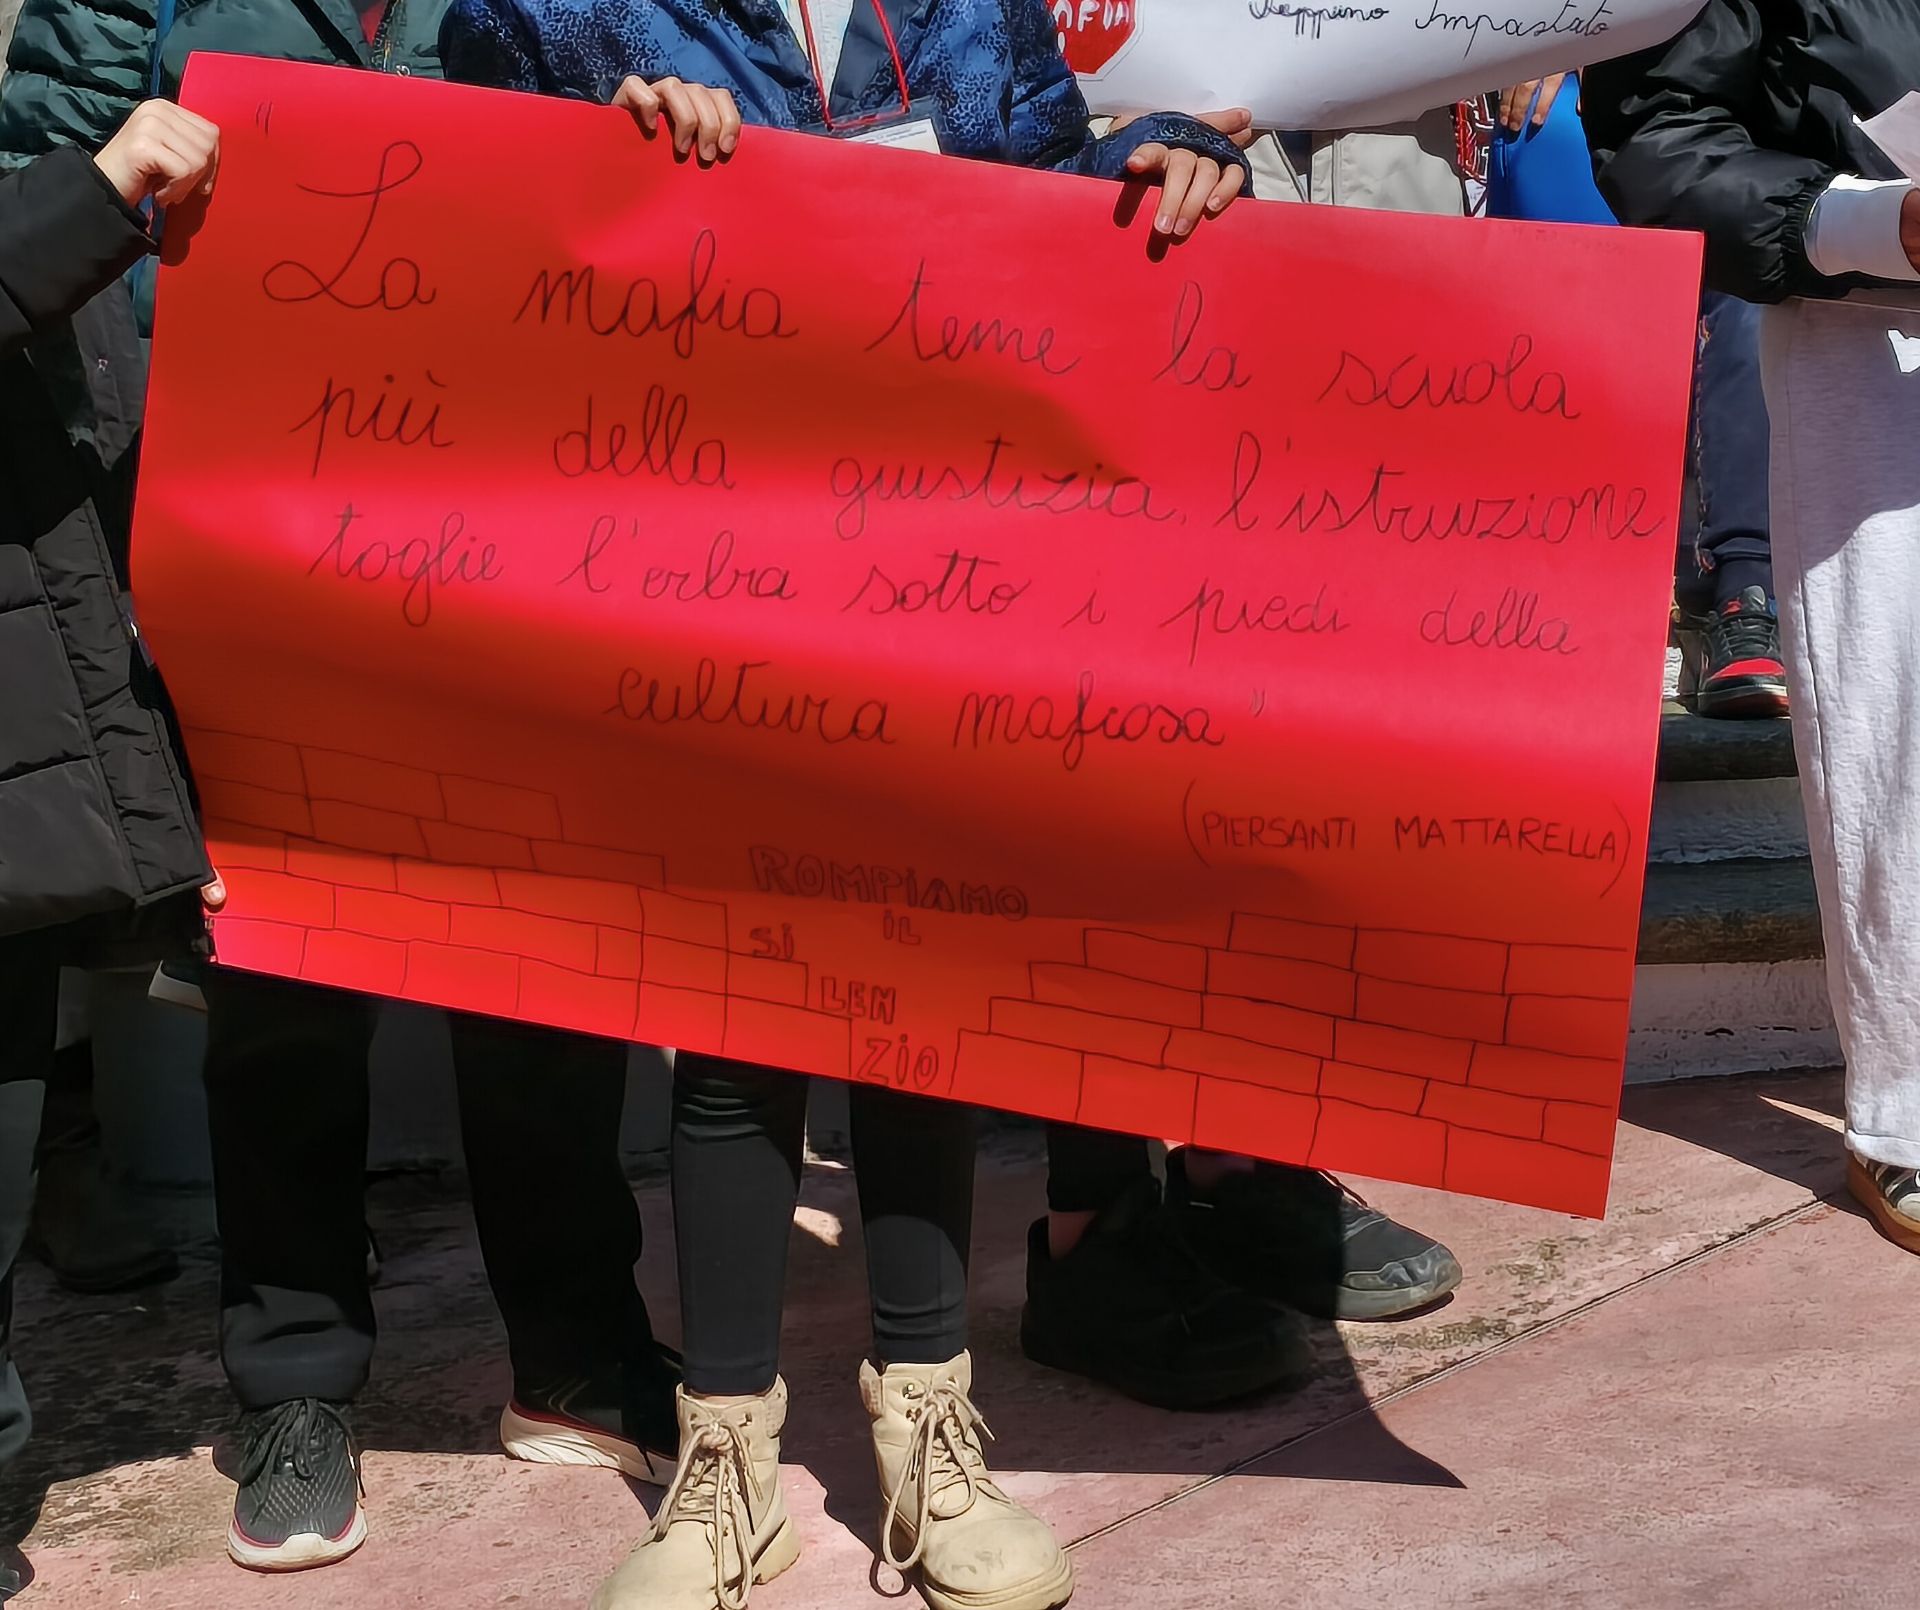 AFIA
!
Peppino Impastato
"La mafia teme la scuola
più della giustizia, l'istruzione
toglie l'erba sotto i piedi della
cultura mafiosa"
(PIERSANTI MATTARELLA)
ROMPiAMO
iL
Si
LEN
ZiO